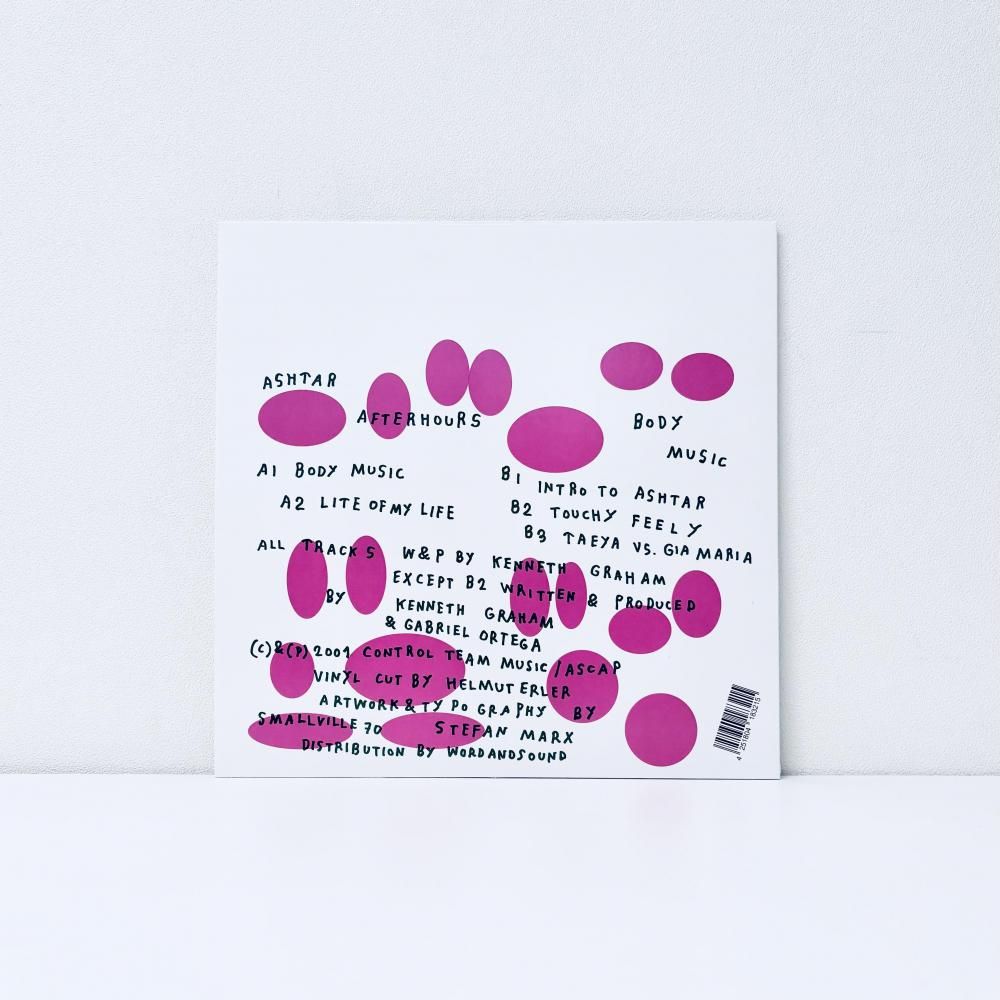 ASHTAR
AFTERHOURS
BODY
MUSIC
A1 BODY MUSIC
A2 LITE OF MY LIFE
B1 INTRO TO ASHTAR
B2 TOUCHY FEELY
B3 TAEYA VS. GIA MARIA
ALL TRACKS W&P BY KENNETH GRAHAM
EXCEPT B2 WRITTEN & PRODUCED
BY KENNETH GRAHAM
& GABRIEL ORTEGA
(C)&(P) 2001 CONTROL TEAM MUSIC / ASCAP
VINYL CUT BY HELMUT ERLER
ARTWORK & TYPOGRAPHY BY
SMALLVILLE 70 STEFAN MARX
DISTRIBUTION BY WORDANDSOUND
4 251804 183215